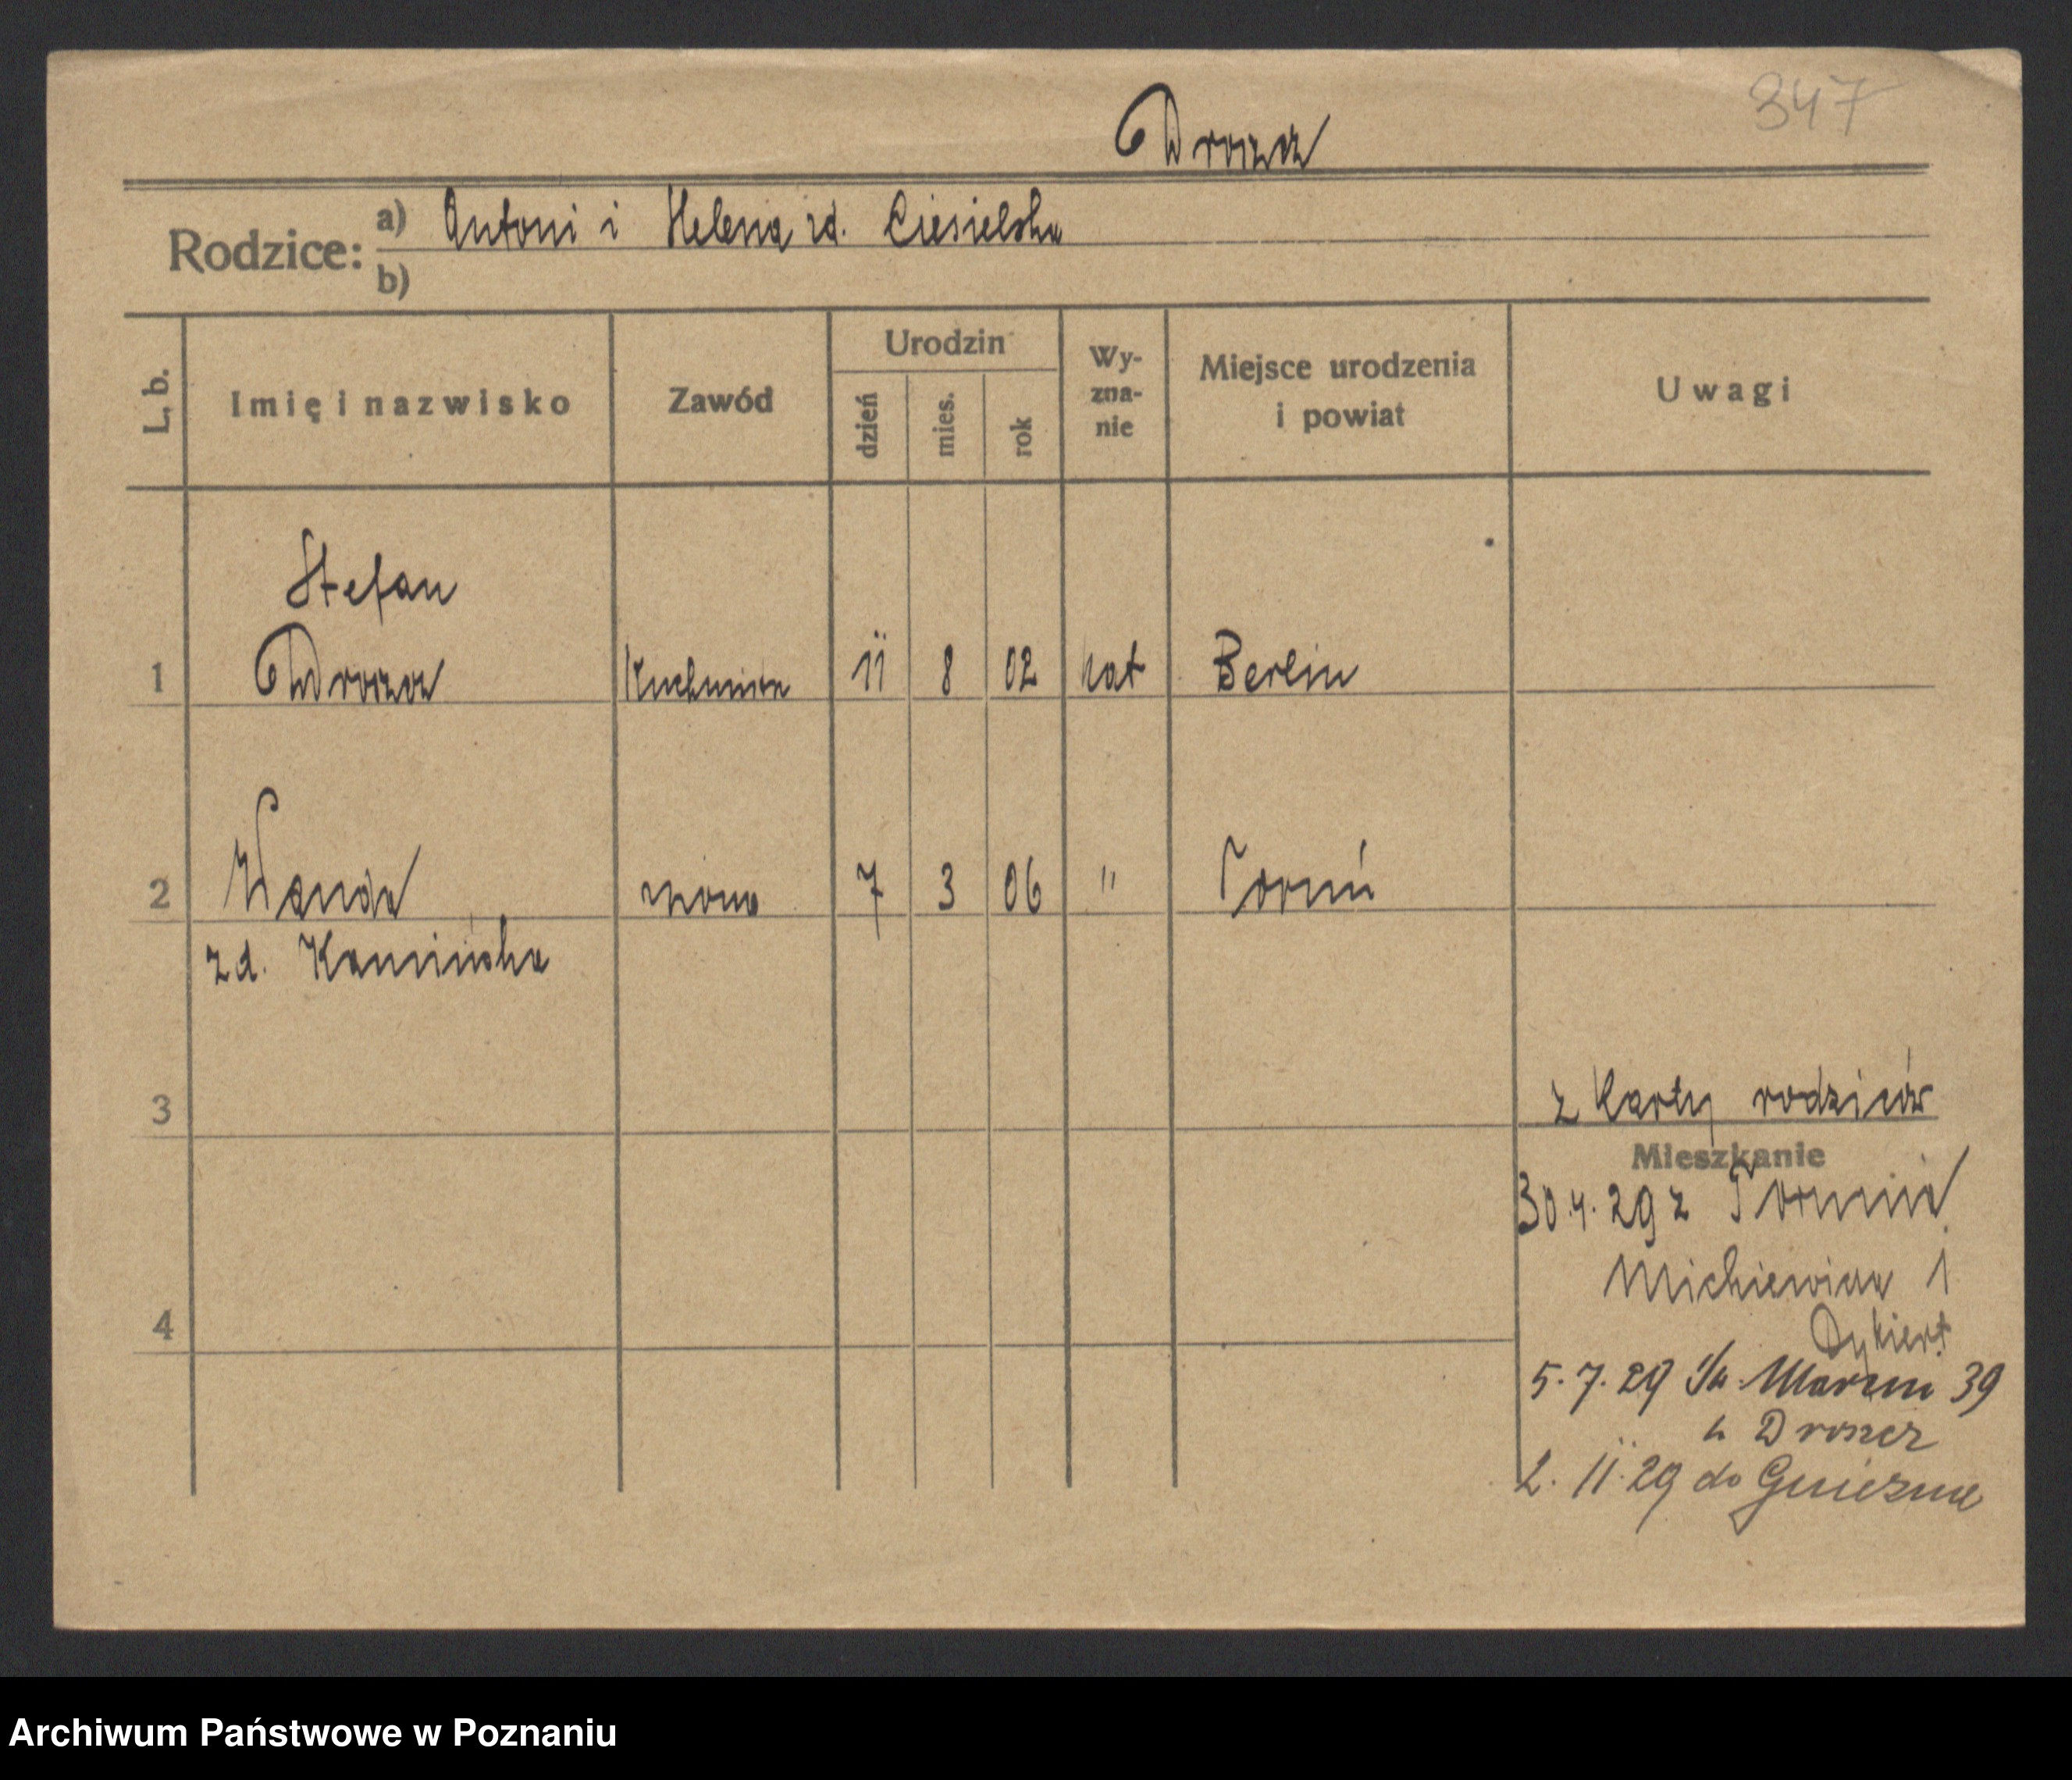 347
Drozcz
Rodzice: a) Antoni i Helena zd. Ciesielska
b)
L. b. Imię i nazwisko Zawód Urodzin dzień mies. rok Wy-zna-nie Miejsce urodzenia i powiat Uwagi
Stefan
1 Drozcz Kuchmistrz 11 8 02 kat Berlin
2 Wanda żona 7 3 06 " Toruń
zd. Kamińska
3 z karty rodziców
Mieszkanie
30.4.29 z Torunia
Mickiewicza 1
4 Dykiert
5.7.29 Św. Marcin 39
u Drozcz
2.11.29 do Gniezna
Archiwum Państwowe w Poznaniu